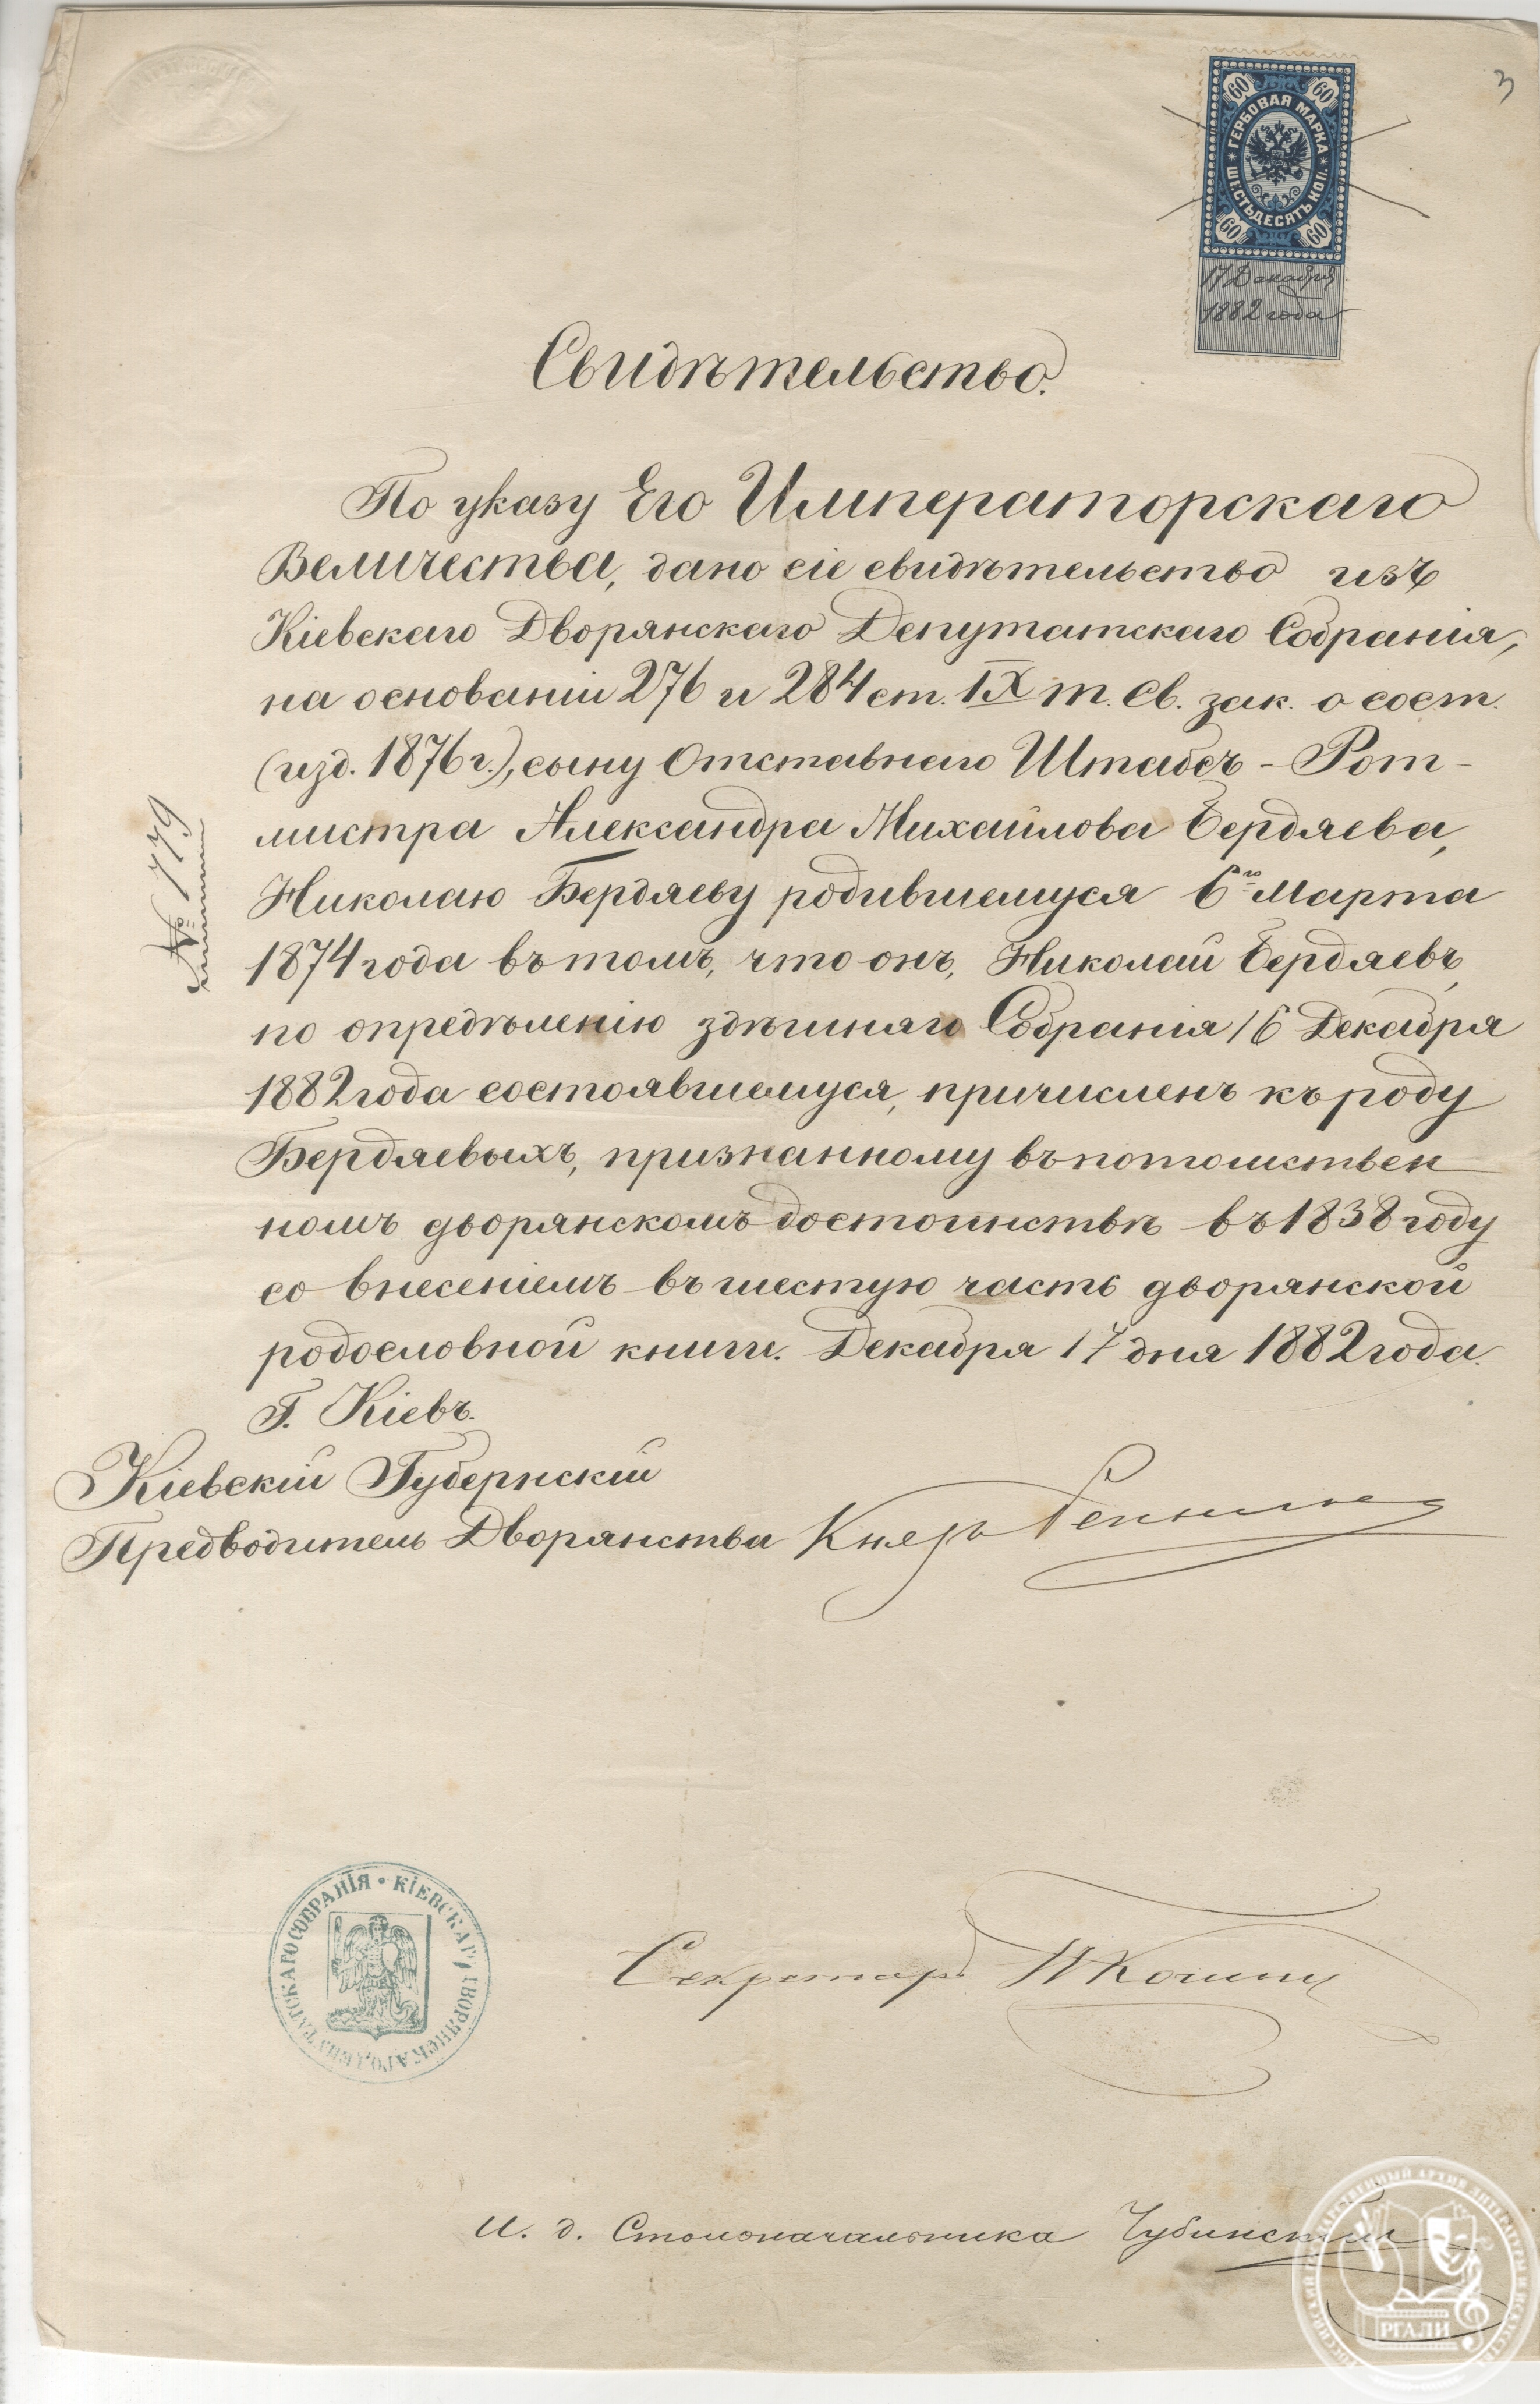 3
60 60
ГЕРБОВАЯ МАРКА
ШЕСТЬДЕСЯТЪ КОП.
60 60
17 Декабря
1882 года
Свидѣтельство.
По указу Его Императорскаго
Величества, дано сіе свидѣтельство изъ
Кіевскаго Дворянскаго Депутатскаго Собранія,
на основаніи 276 и 284 ст. IX т. Св. зак. о сост.
(изд. 1876 г.), сыну Отставнаго Штабсъ-Рот-
мистра Александра Михайлова Бердяева,
Николаю Бердяеву родившемуся 6го Марта
1874 года въ томъ, что онъ, Николай Бердяевъ,
по опредѣленію здѣшняго Собранія 16 Декабря
1882 года состоявшемуся, причисленъ къ роду
Бердяевыхъ, признанному въ потомствен
номъ дворянскомъ достоинствѣ въ 1838 году
со внесеніемъ въ шестую часть дворянской
родословной книги. Декабря 17 дня 1882 года.
Г. Кіевъ.
№ 779
Кіевскій Губернскій
Предводитель Дворянства Князь Репнинъ
КІЕВСКАГО ДВОРЯНСКАГО ДЕПУТАТСКАГО СОБРАНІЯ
Секретарь
И. д. Столоначальника Чубинскій
РОССИЙСКИЙ ГОСУДАРСТВЕННЫЙ АРХИВ ЛИТЕРАТУРЫ И ИСКУССТВА
РГАЛИ